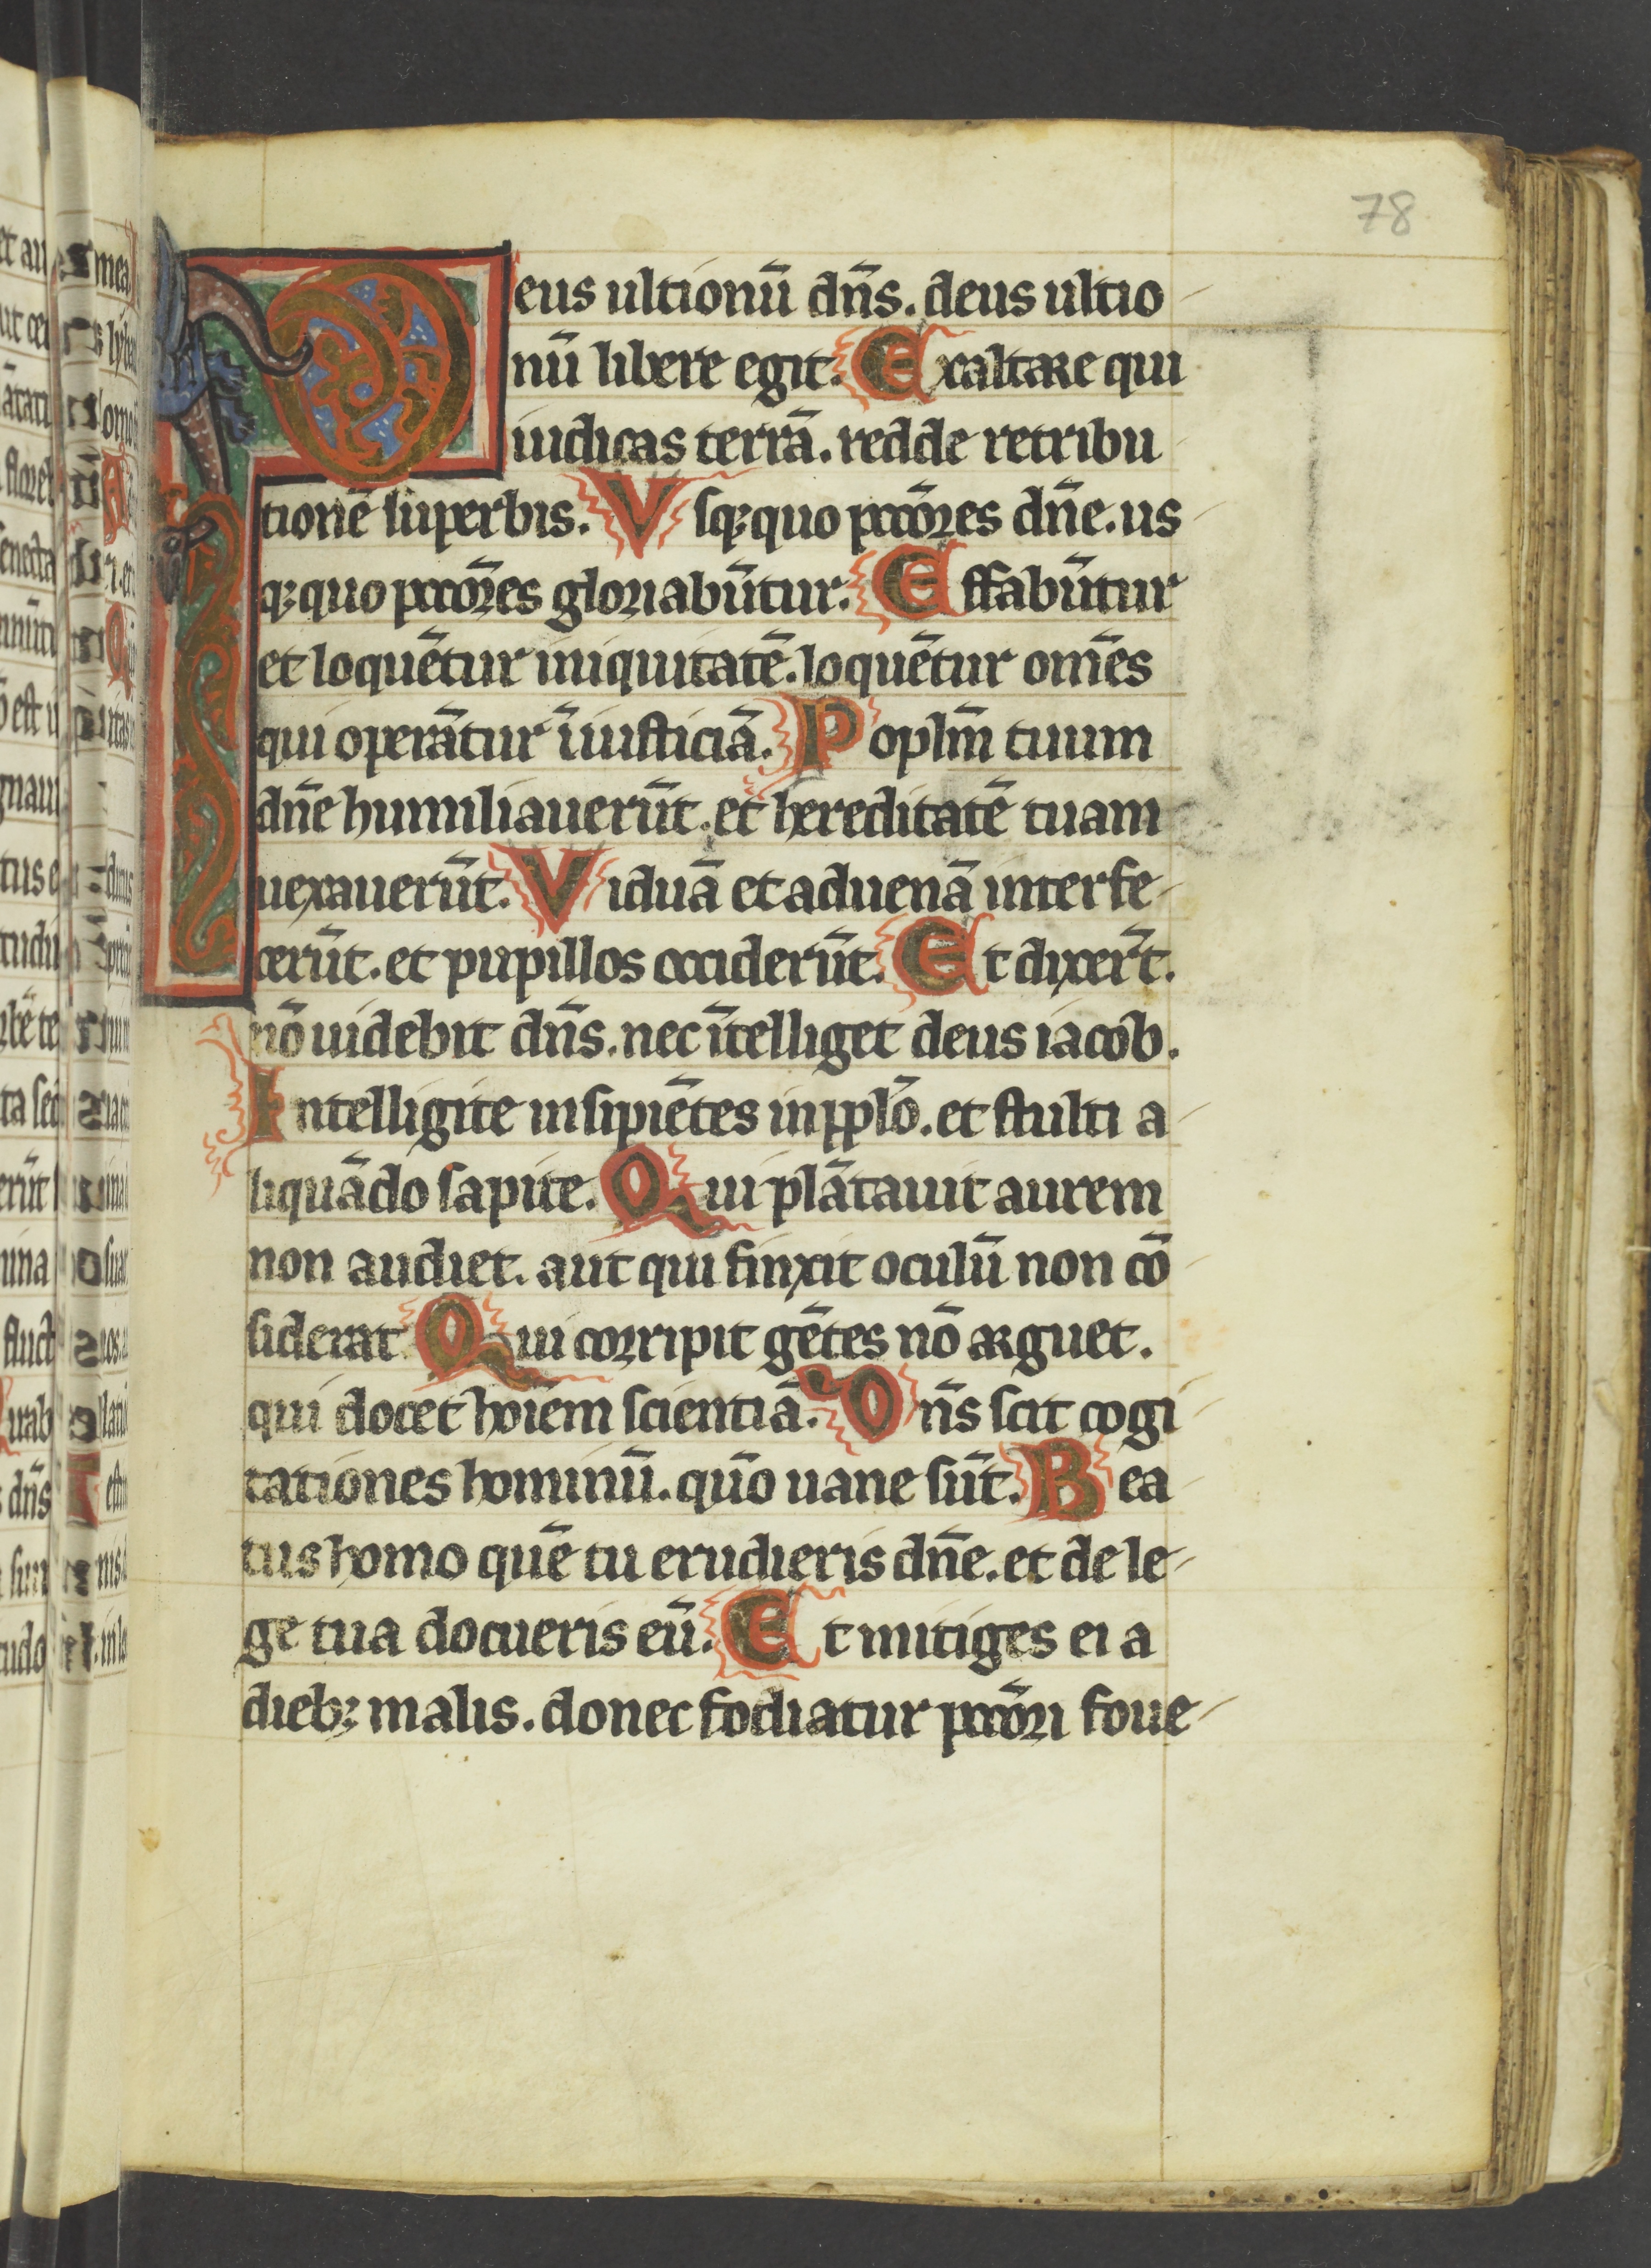 78
Deus ultionū dn̄s. deus ultio
nū libere egit. Exaltare qui
iudicas terrā. redde retribu
tionē superbis. Vsqꝫquo pccōres dn̄e. us
qꝫquo pccōres gloriabūtur. Effabūtur
et loquētur iniquitatē. loquētur om̄es
qui operātur īiusticiā. Poplm̄ tuum
dn̄e humiliauerūt. et hereditatē tuam
uexauerūt. Viduā et aduenā interfe
cerūt. et pupillos occiderūt. Et dixer̄t.
nō uidebit dn̄s. nec ītelliget deus iacob.
Intelligite insipiētes in ppl̄o. et stulti a
liquādo sapite. Qui plātauit aurem
non audiet. aut qui finxit oculū non cō
siderat. Qui corripit gētes nō arguet.
qui docet hoīem scientiā. Dn̄s scit cogi
tationes hominū. qūo uane sūt. Bea
tus homo quē tu erudieris dn̄e. et de le
ge tua docueris eū. Et mitiges ei a
diebꝫ malis. donec fodiatur pccōri foue